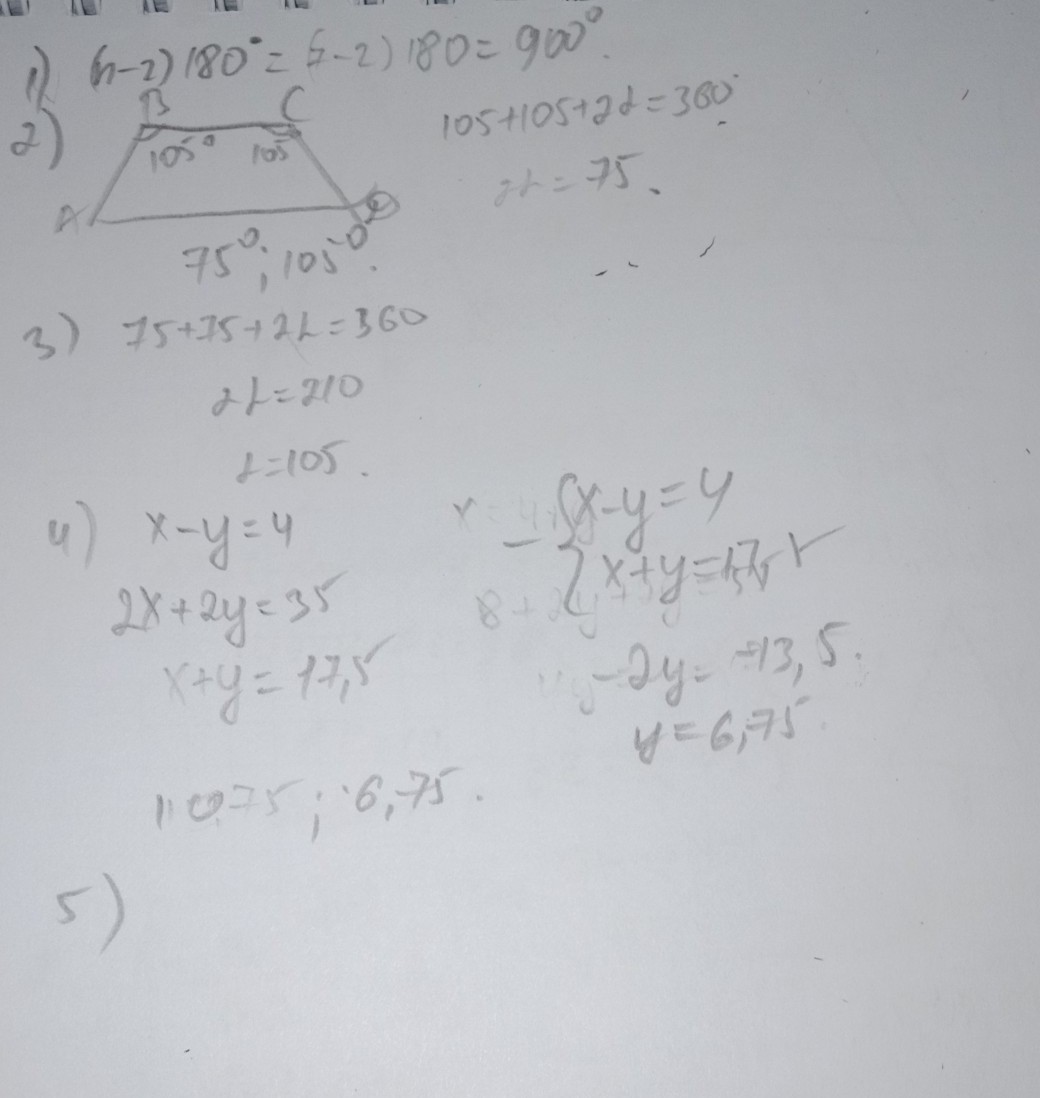 1) (n-2)180°=(7-2)180=900°.
2)
B C
105° 105
A D
105+105+2α=360
α=75.
75°; 105°.
3) 75+75+2α=360
2α=210
α=105.
4) x-y=4
2x+2y=35
x+y=17,5
x-y=4
x+y=17,5
-2y=-13,5.
y=6,75
10,75; 6,75.
5)